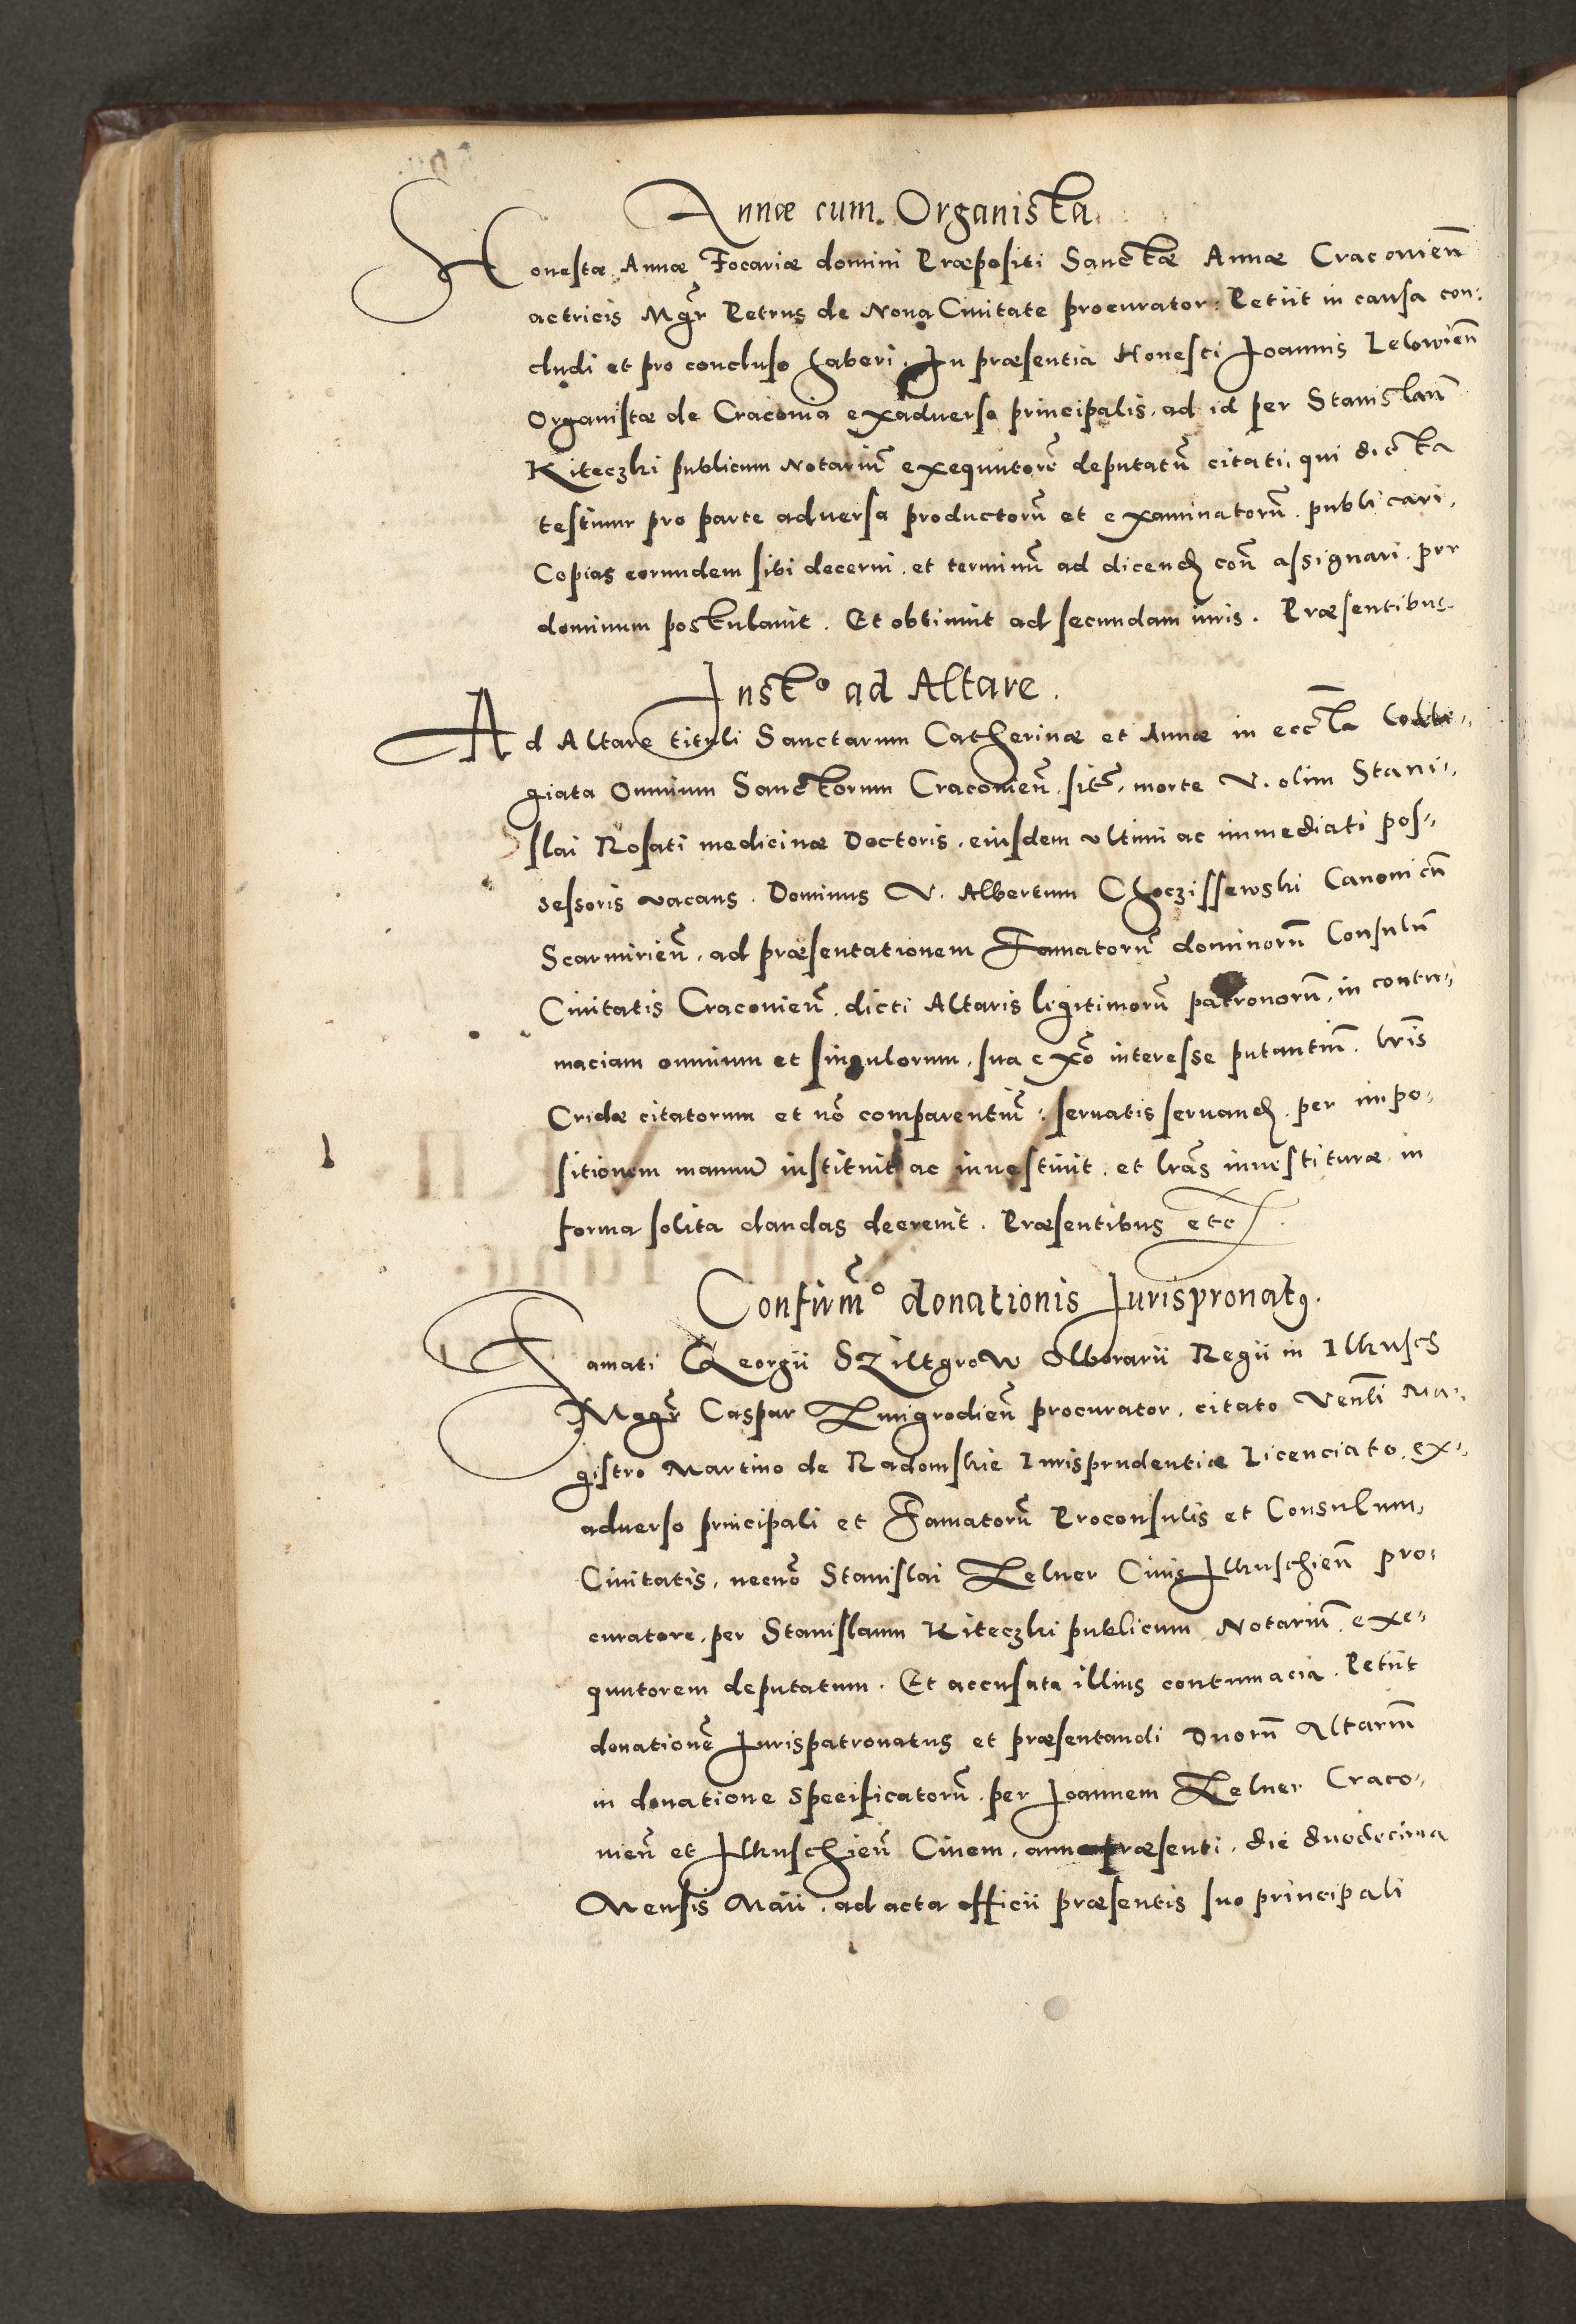 Annæ cum Organista.
Honestæ Annæ Focariæ domini Præpositi Sanctæ Annæ Cracovien̄
actricis Mgr̄ Petrus de Nova Civitate procurator. Petiit in causa con-
cludi et pro concluso haberi. In præsentia Honesti Joannis Lelowien̄
Organistæ de Cracovia exadverso principalis, ad id per Stanislaū
Kiteczki publicum Notariū exequutorē deputatū citati, qui dicta
testium pro parte adversa productorū et examinatorū publicari,
Copias eorundem sibi decerni et terminū ad dicend̄ con̄ assignari per
dominum postulavit. Et obtinuit ad secundam iuris. Præsentibus.
Inst° ad Altare.
Ad Altare tituli Sanctarum Catherinæ et Annæ in eccl̄a Colle-
giata Omnium Sanctorum Cracovien̄ sit̄, morte V. olim Stani-
slai Rosati medicinæ Doctoris, eiusdem ultimi ac immediati pos-
sessoris vacans. Dominus V. Albertum Choczissewski Canonicū
Scarmirien̄, ad præsentationem Famatorū dominorū Consulū
Civitatis Cracovien̄, dicti Altaris legitimorū patronorū, in contu-
maciam omnium et singulorum, sua exō interesse putantiū, lr̄is
Cridæ citatorum et nō comparentiū, servatis servand̄, per impo-
sitionem manuū instituit ac investivit, et lr̄as investituræ in
forma solita dandas decrevit. Præsentibus etc
Confirm̄° donationis Jurispronatꝰ.
Famati Georgii Sziltgrow Olborarii Regii in Ilkusch
Magr̄ Caspar Zmigrodien̄ procurator, citato Venl̄i Ma-
gistro Martino de Radomskie Iurisprudentiæ Licenciato, ex-
adverso principali et Famatorū Proconsulis et Consulum
Civitatis, necnō Stanislai Zelner Civis Ilkuschien̄ pro-
curatore, per Stanislaum Kiteczki publicum Notariū exe-
quutorem deputatum. Et accusata illius contumacia. Petiit
donationē Jurispatronatus et præsentandi Duorū Altariū
in donatione specificatorū, per Joannem Zelner Craco-
vien̄ et Ilkuschien̄ Civem, anno præsenti, die duodecima
Mensis Maii, ad acta officii præsentis suo principali